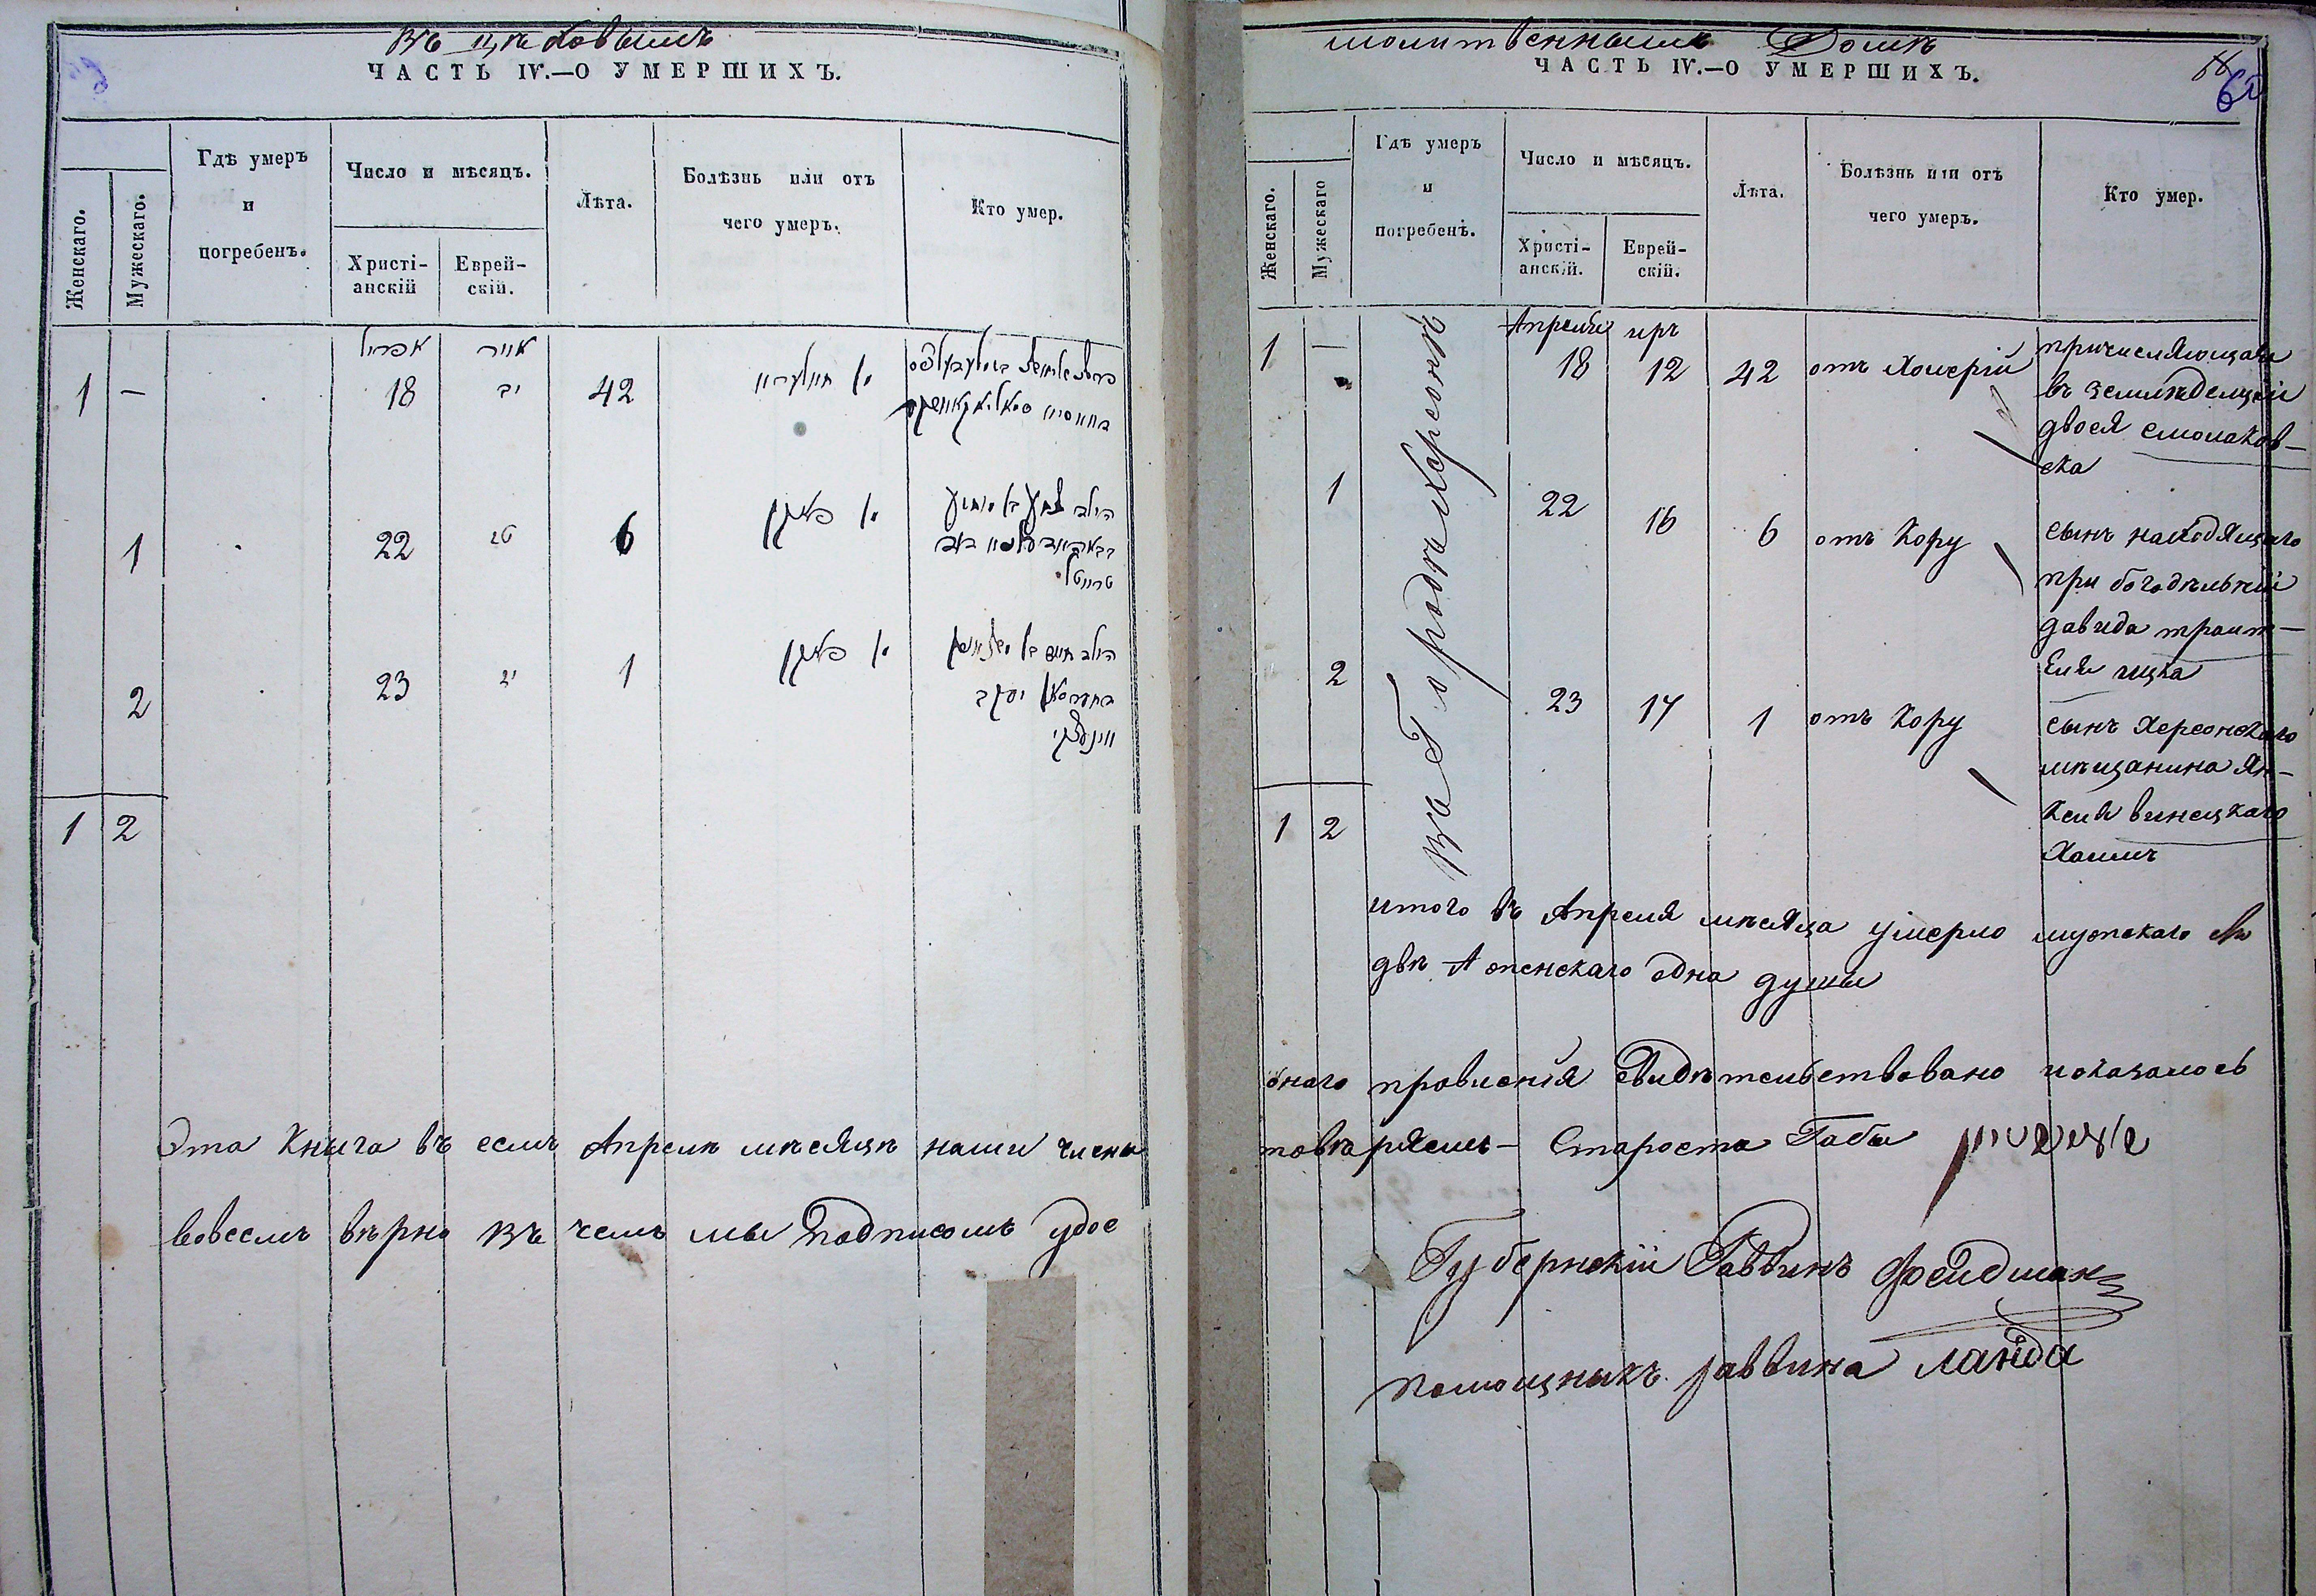 Въ цеховымъ
ЧАСТЬ IV.—О УМЕРШИХЪ.
Женскаго.
Мужескаго.
Гдѣ умеръ
и
погребенъ.
Число и мѣсяцъ.
Христі-
анскій
Еврей-
скій.
Лѣта.
Болѣзнь или отъ
чего умеръ.
Кто умер.
אפריל אייר
1 — 18 יב 42 פון חולעריע
1 22 טז 6 פון פאקין
2 23 יז 1 פון פאקין
1 2
Эта Книга въ семъ Апреле месяце нами члены
вовсемъ верно въ чемъ мы Подписомъ удос
молитвенными Доме
ЧАСТЬ IV.—О УМЕРШИХЪ.
Женскаго.
Мужескаго
Гдѣ умеръ
и
погребенъ.
Число и мѣсяцъ.
Христі-
анскій.
Еврей-
скій.
Лѣта.
Болѣзнь или отъ
чего умеръ.
Кто умер.
въ Городе Херсоне
Апреля иръ
1 — 18 12 42 отъ Холерій
причисляющая
въ земледелцей
двося смолаков-
ска
1 22 16 6 отъ Кору
сынъ находящаго
при богодельній
давида траит-
еля ицка
2 23 17 1 отъ Кору
сынъ Херсонскаго
мещанина Ян-
келя винецкаго
Хаимъ
1 2
итого въ Апреля месяца умерло мужскаго
две А женскаго одна души
онаго правленія Свидетельствовано показалось
товеряемъ — Староста Габы
Губернскій Раввинъ Фейдман
помощникъ раввина ланда